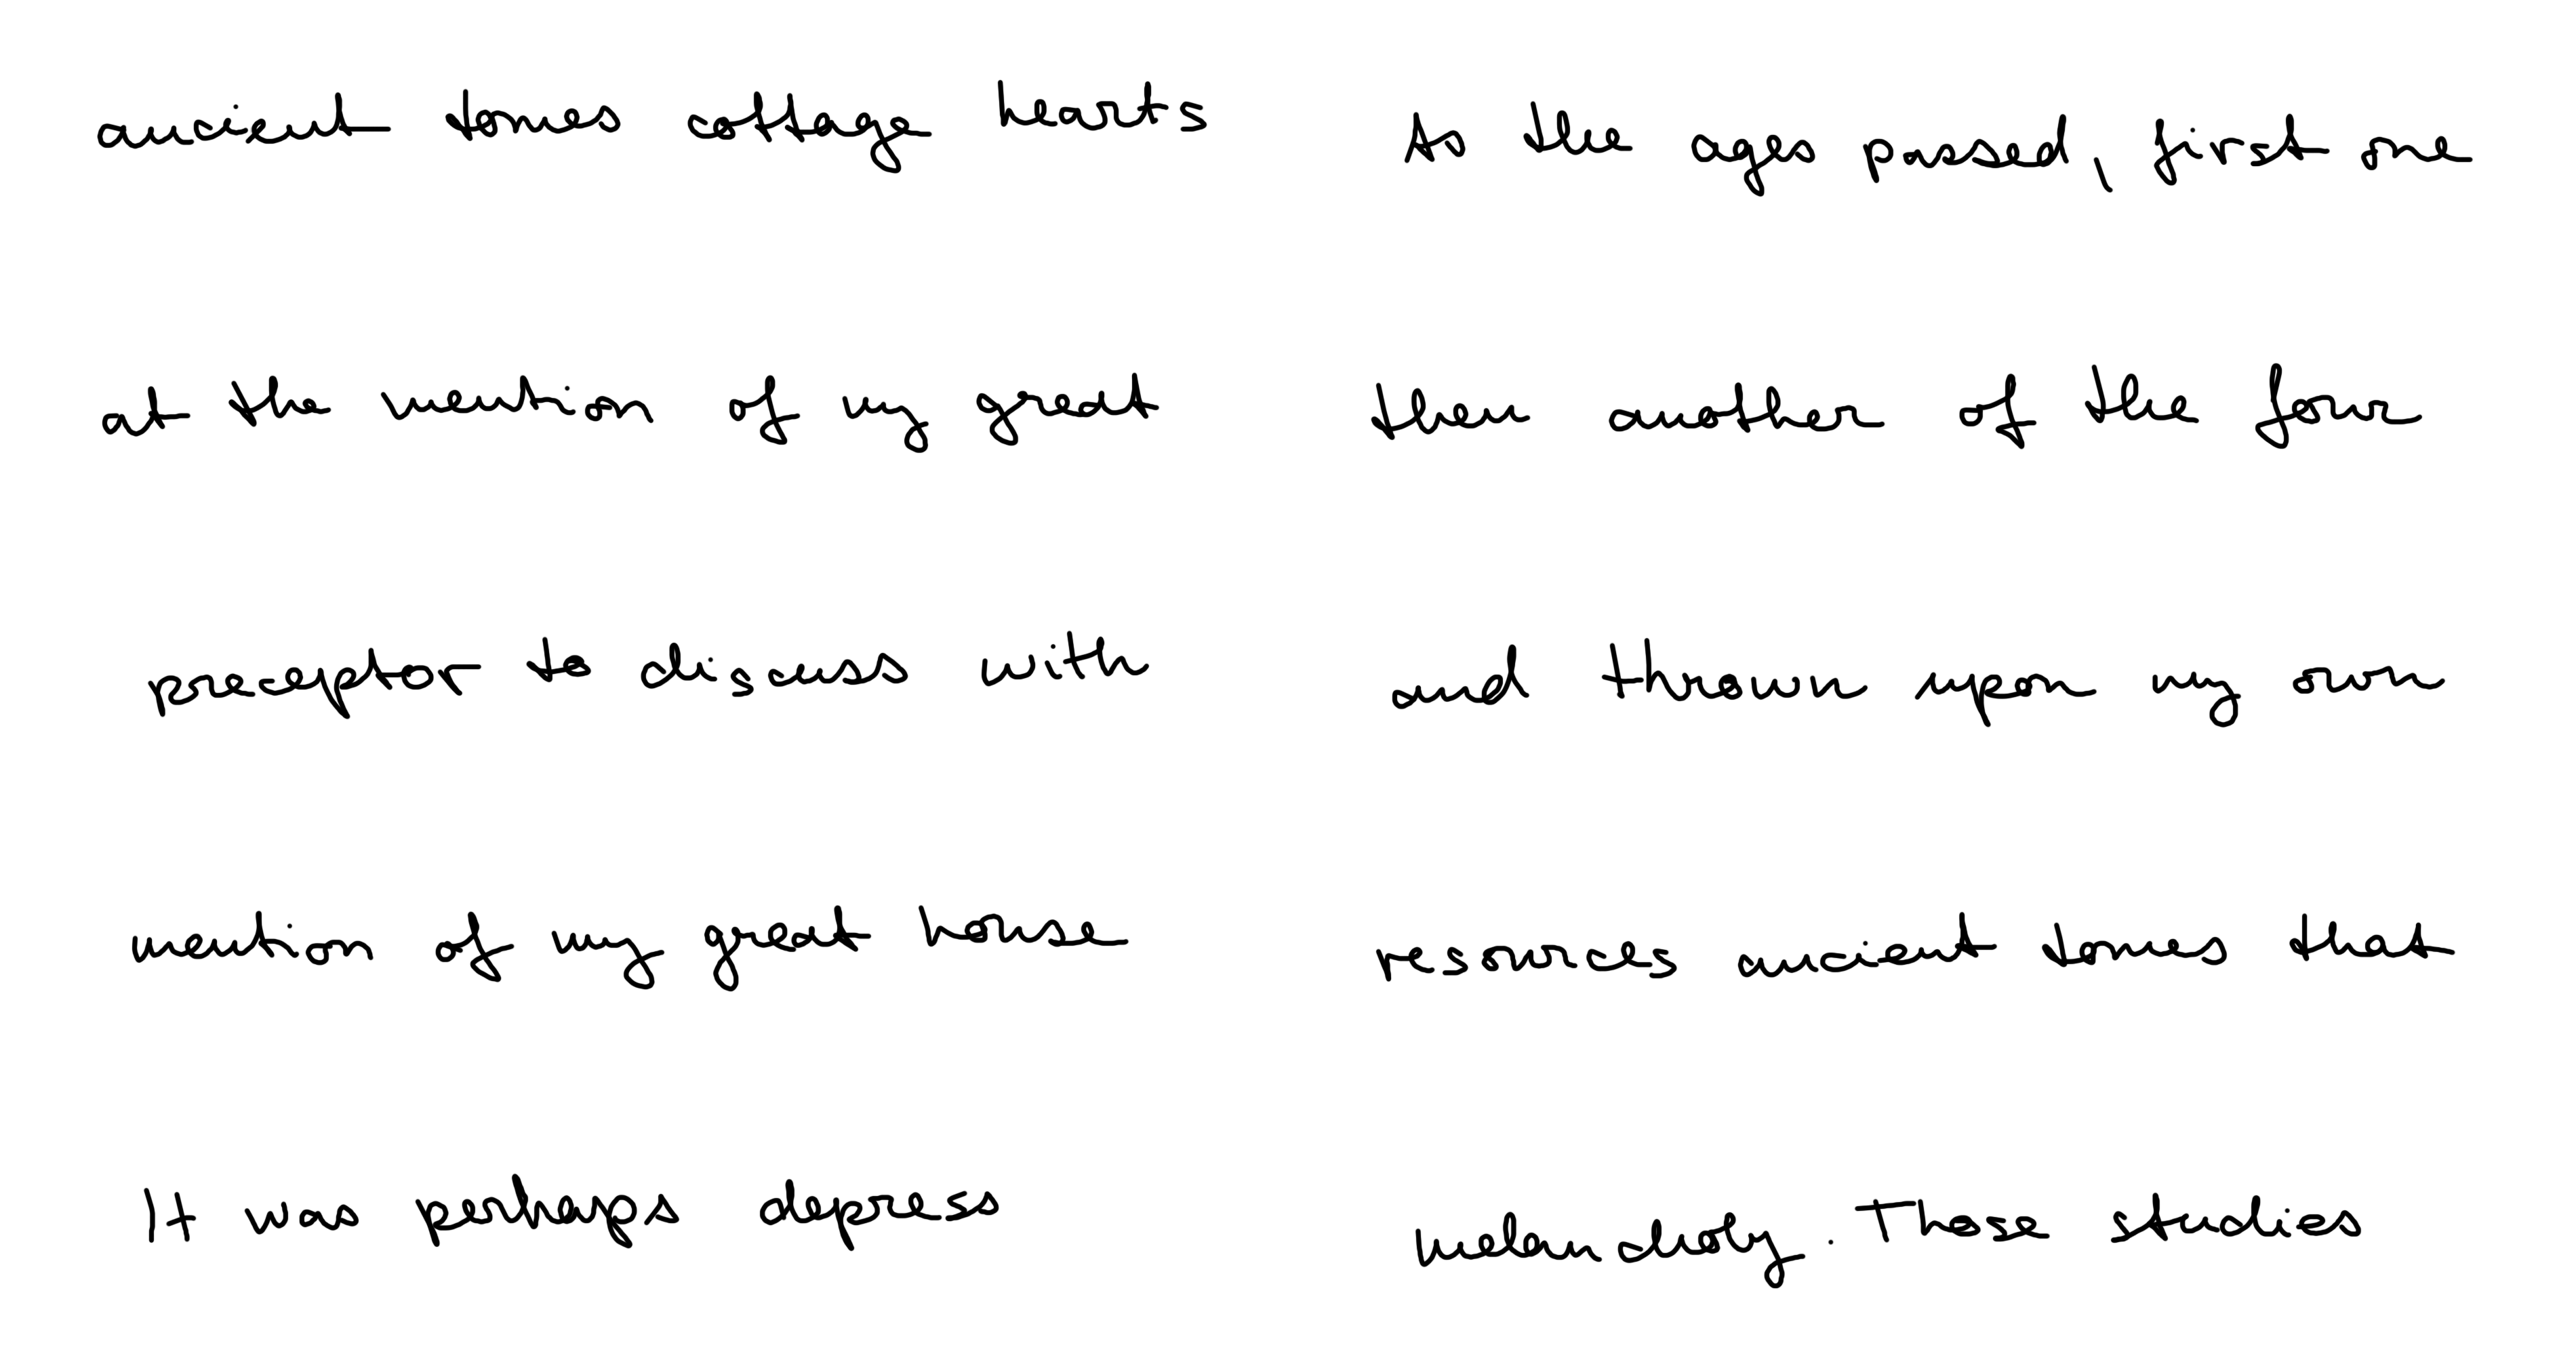 ancient tomes cottage hearts
at the mention of my great
preceptor to discuss with
mention of my great house
It was perhaps depress
As the ages passed, first one
then another of the four
and thrown upon my own
resources ancient tomes that
melancholy. Those studies